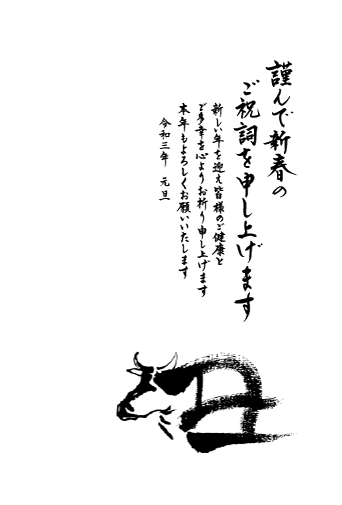 謹んで新春の
ご祝詞を申し上げます
新しい年を迎え皆様のご健康と
ご多幸を心よりお祈り申し上げます
本年もよろしくお願いいたします
令和三年 元旦
丑